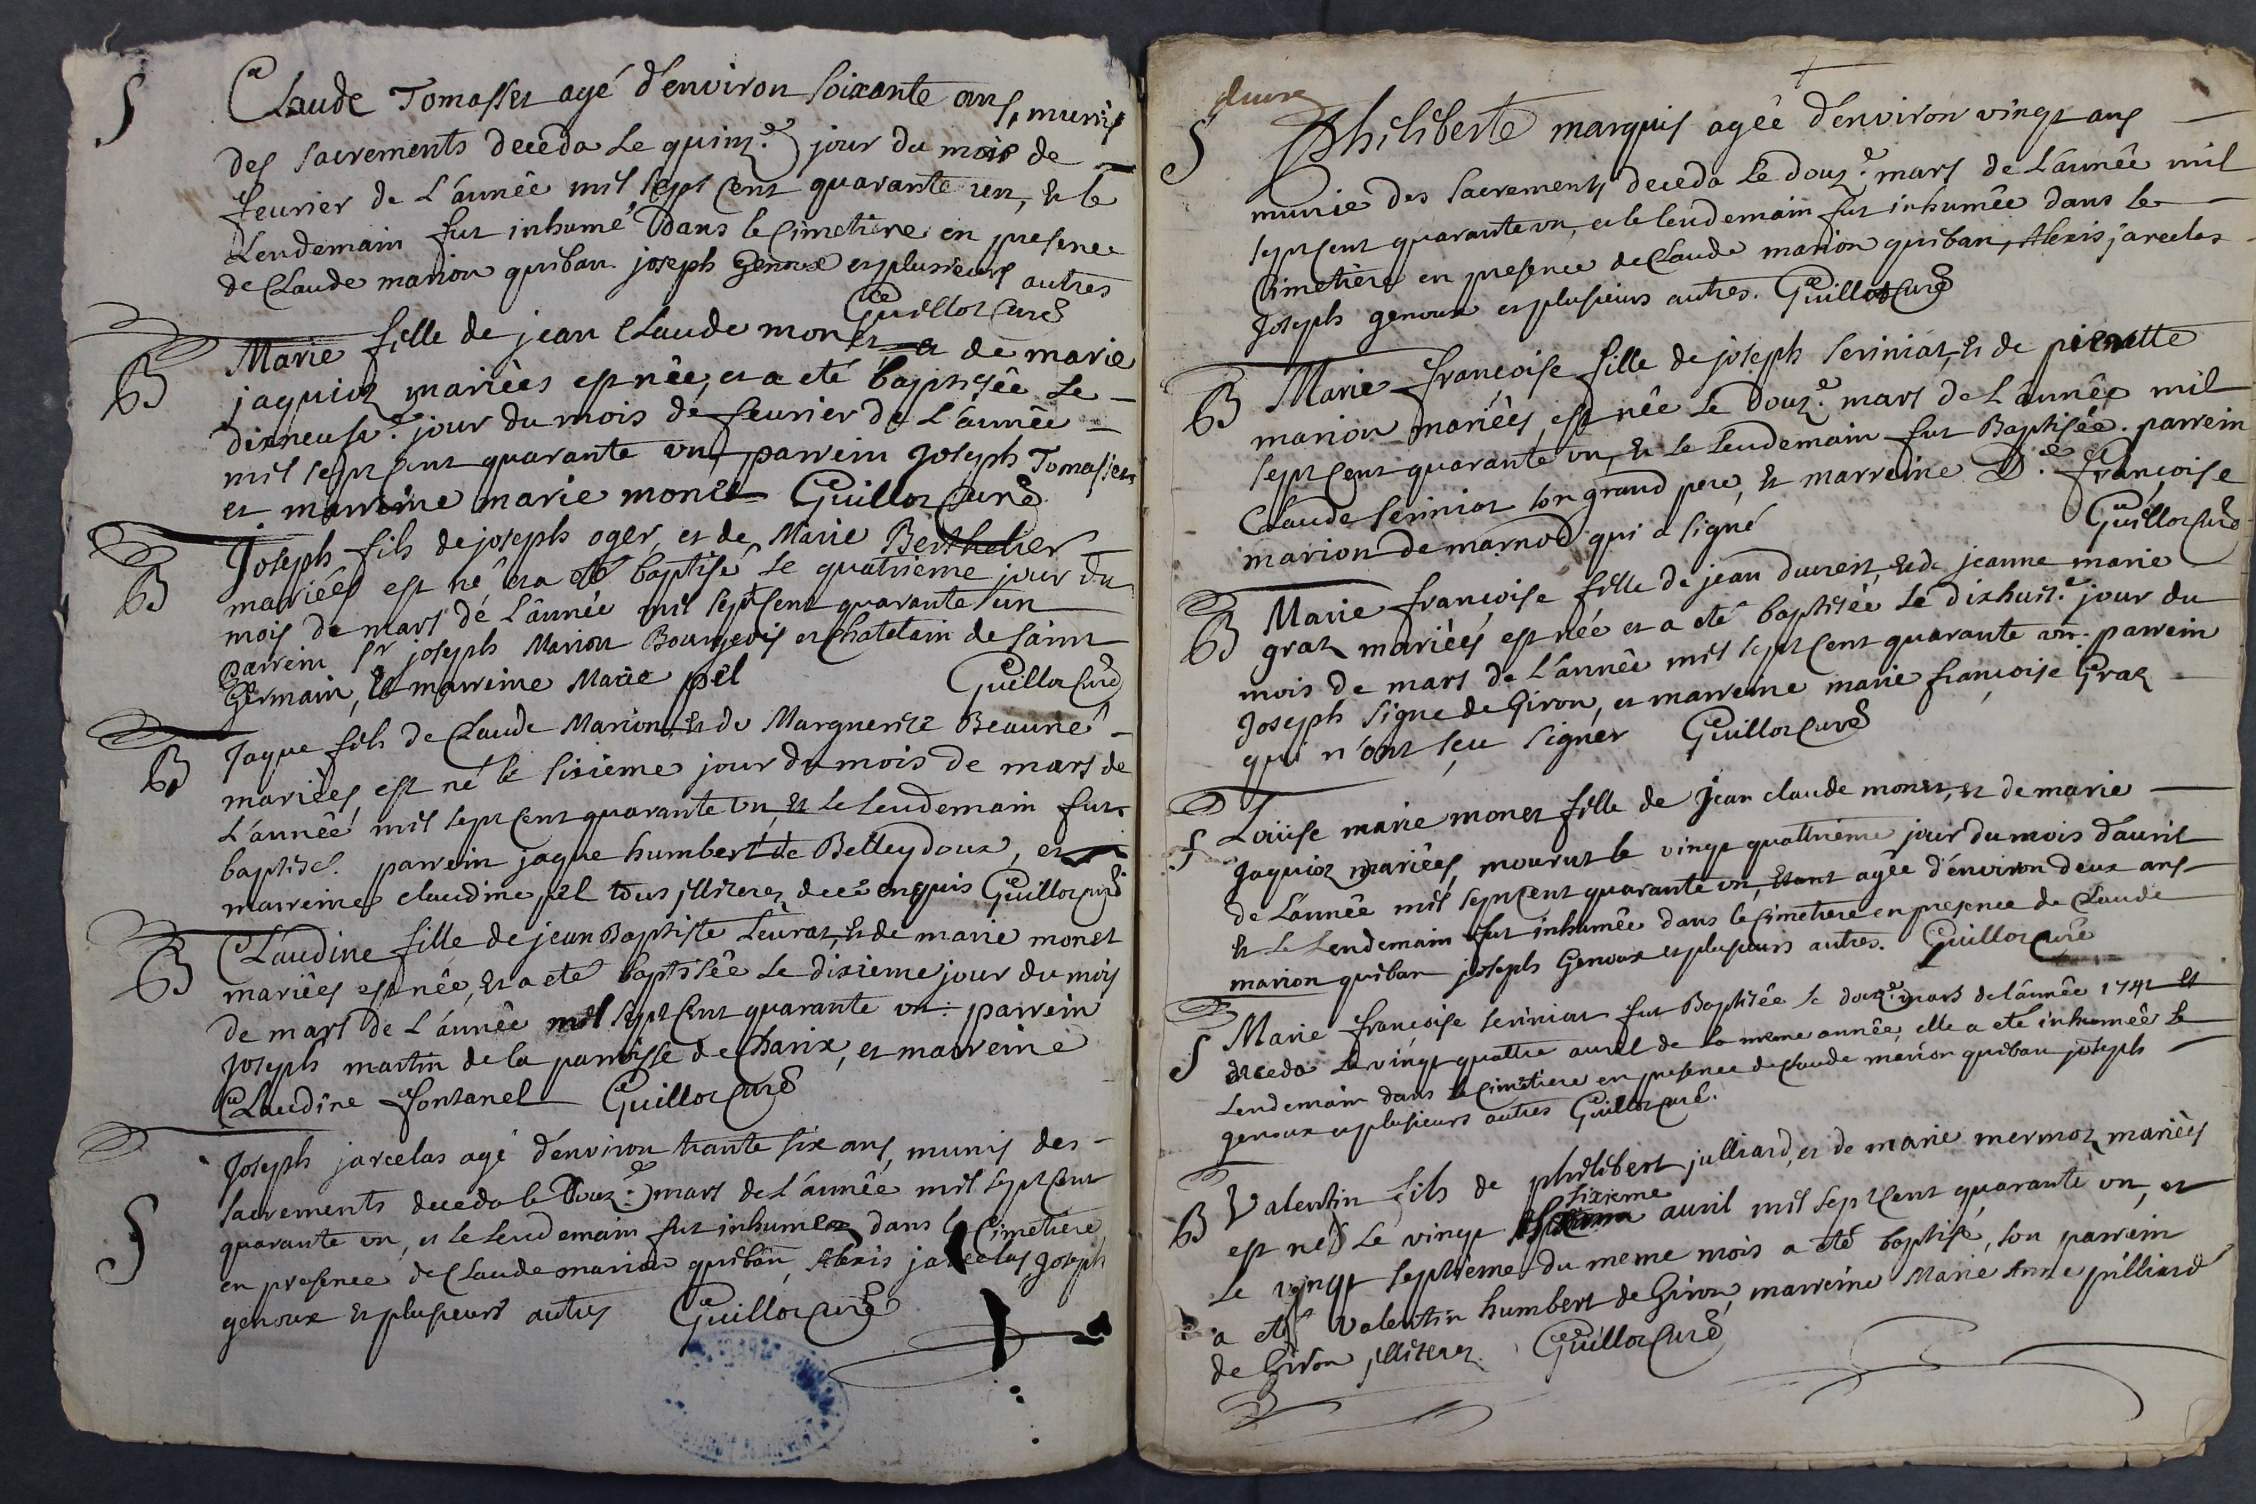 S
Claude Tomasset agé d'environ soixante ans, munis
des sacrements deceda le quinz.e jour du mois de
feurier de L'année mil sept cent quarante un, et le
Lendemain fut inhumé dans le Cimetiere en presence
de Claude marion quiban joseph Genoux et plusieurs autres
Guillot Curé
B
Marie fille de jean Claude monet et de marie
jaquioz mariées est née, et a eté baptisée le
dixneufu.e jour du mois de feurier de L'année
mil sept cent quarante un, parrein Joseph Tomasset
et marreine marie monet Guillot Curé
B
Joseph fils de joseph oger, et de Marie Berthelier
mariées est né et a eté baptisé le quatrieme jour du
mois de mars de L'année mil sept cent quarante un
parrein Sr joseph Marion Bourgeois et Chatelain de saint
Germain, et marreine Marie pêl Guillot Curé
B
Jaque fils de Claude Marion, et de Marguerite Beauné
mariées, est né le sixieme jour du mois de mars de
L'année mil sept cent quarante un, et le lendemain fut
baptisé. parrein jaque humbert de Belleydoux, et
marreine claudine pêl tous illiterez de ce enquis Guillot curé
B
Claudine fille de jean Baptiste Leurat, et de marie monet
mariées est née, et a eté baptisée le dixieme jour du mois
de mars de L'année mil sept cent quarante un: parrein
Joseph martin de la parroisse de Charix, et marreine
Claudine fontanel Guillot Curé
S
Joseph jarcelas agé d'environ trante six ans, munis des
sacrements deceda le douz.e mars de L'année mil sept cent
quarante un, et le lendemain fut inhumez dans le Cimetiere
en presence de Claude marion quiban, Alexis jarcelas Joseph
genoux et plusieurs autres Guillot Curé
S
Philiberte marquis agée d'environ vingt ans
munie des sacrements deceda le douz.e mars de L'année mil
sept cent quarante un, et le lendemain fut inhumée dans le
Cimetiere en presence de Claude marion quiban, Alexis jarcelas
Joseph genoux et plusieurs autres. Guillot Curé
B
Marie françoise fille de joseph seriniat, et de pierrette
marion mariées, est née le douz.e mars de L'année mil
sept cent quarante un, et le lendemain fut Baptisée. parrein
Claude seriniat son grand pere, et marreine D.e françoise
marion de marnod qui a signé Guillot Curé
B
Marie françoise fille de jean duvert, et de jeanne marie
graz mariées est née et a eté baptisée le dixhuit.e jour du
mois de mars de L'année mil sept cent quarante un. parrein
Joseph signe de Giron, et marreine marie françoise Graz
qui n'ont sçu signer Guillot Curé
S
Loüise marie monet fille de jean claude monet, et de marie
Jaquioz mariées, mourut le vingt quattrieme jour du mois d'auril
de L'année mil sept cent quarante un, etant agée d'environ deux ans
et le Lendemain fut inhumée dans le Cimetiere en presence de Claude
marion quiban joseph Genoux et plusieurs autres. Guillot Curé
S
Marie françoise seriniat fut Baptisée le douz.e mars de l'année 1741 et
deceda le vingt quattre auril de la meme année, elle a eté inhumée le
Lendemain dans le Cimetiere en presence de Claude marion quiban joseph
genoux et plusieurs autres Guillot curé.
B
Valentin fils de philibert julliard, et de marie mermoz mariées
sixieme
est né le vingt auril mil sept cent quarante un, et
le vingt septieme du meme mois a eté baptisé, son parrein
a eté valentin humbert de Giron, marreine Marie Anne julliard
de Giron illiterez. Guillot Curé